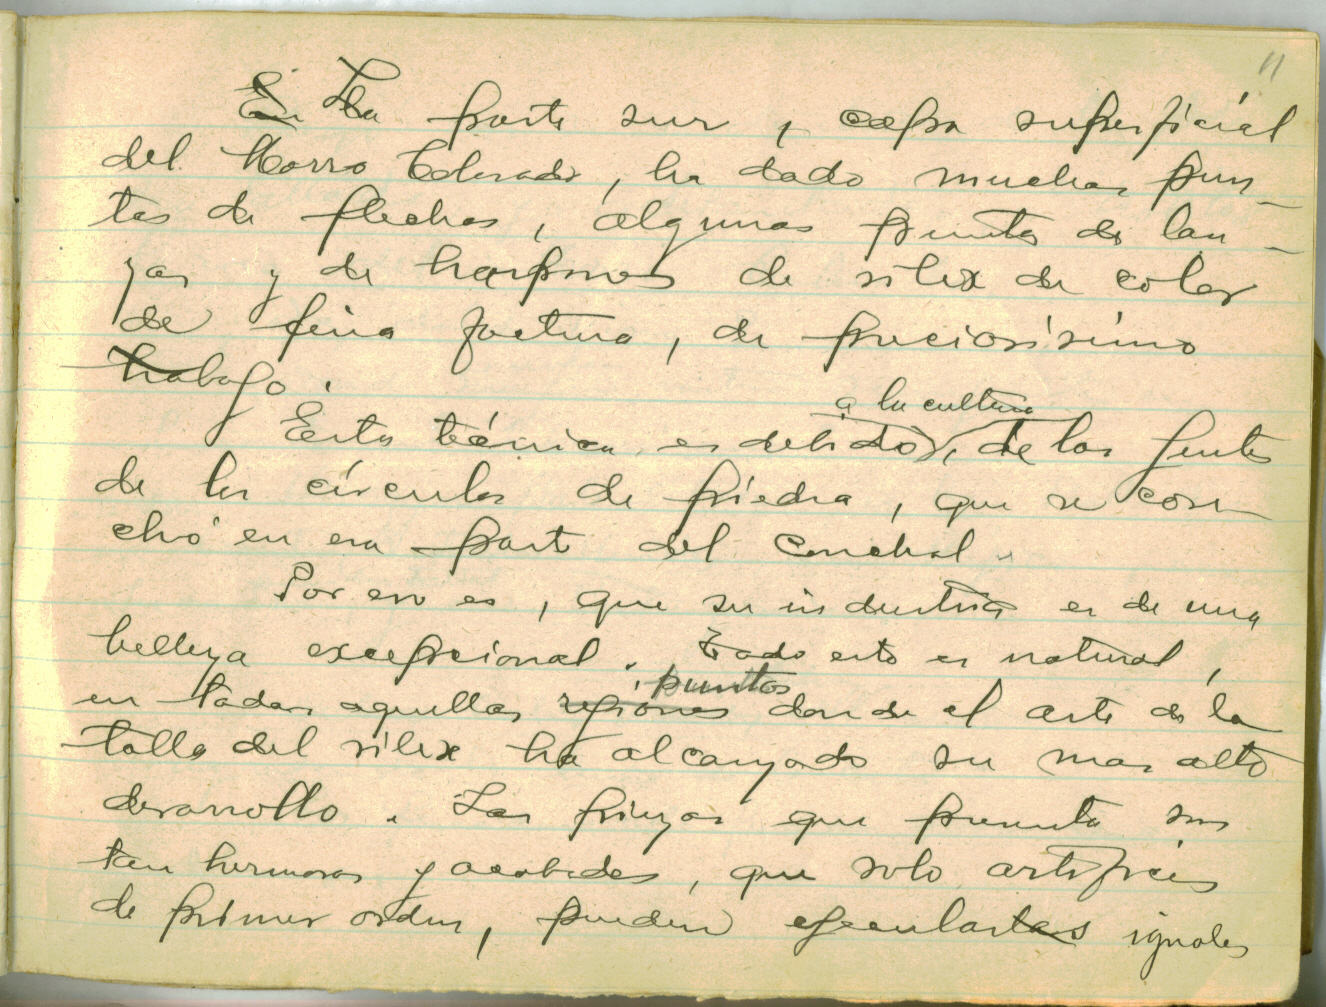 11
En La parte sur, capa superficial
del Morro Colorado, ha dado muchas pun-
tas de flechas, algunas puntas de lan-
zas y de harpones de silex de color
de fina factura, de preciosisimo
trabajo.
a la cultura
Esta técnica es debido, de las gentes
de los círculos de piedra, que se cose-
chó en esa parte del conchal
Por eso es, que su industria es de una
belleza excepcional. Todo esto es natural,
puntos
en todas aquellas regiones donde el arte de la
talla del silex ha alcanzado su mas alto
desarrollo. Las piezas que presenta son
tan hermosas y acabadas, que solo artifices
de primer orden, pueden ejecutarlas iguales